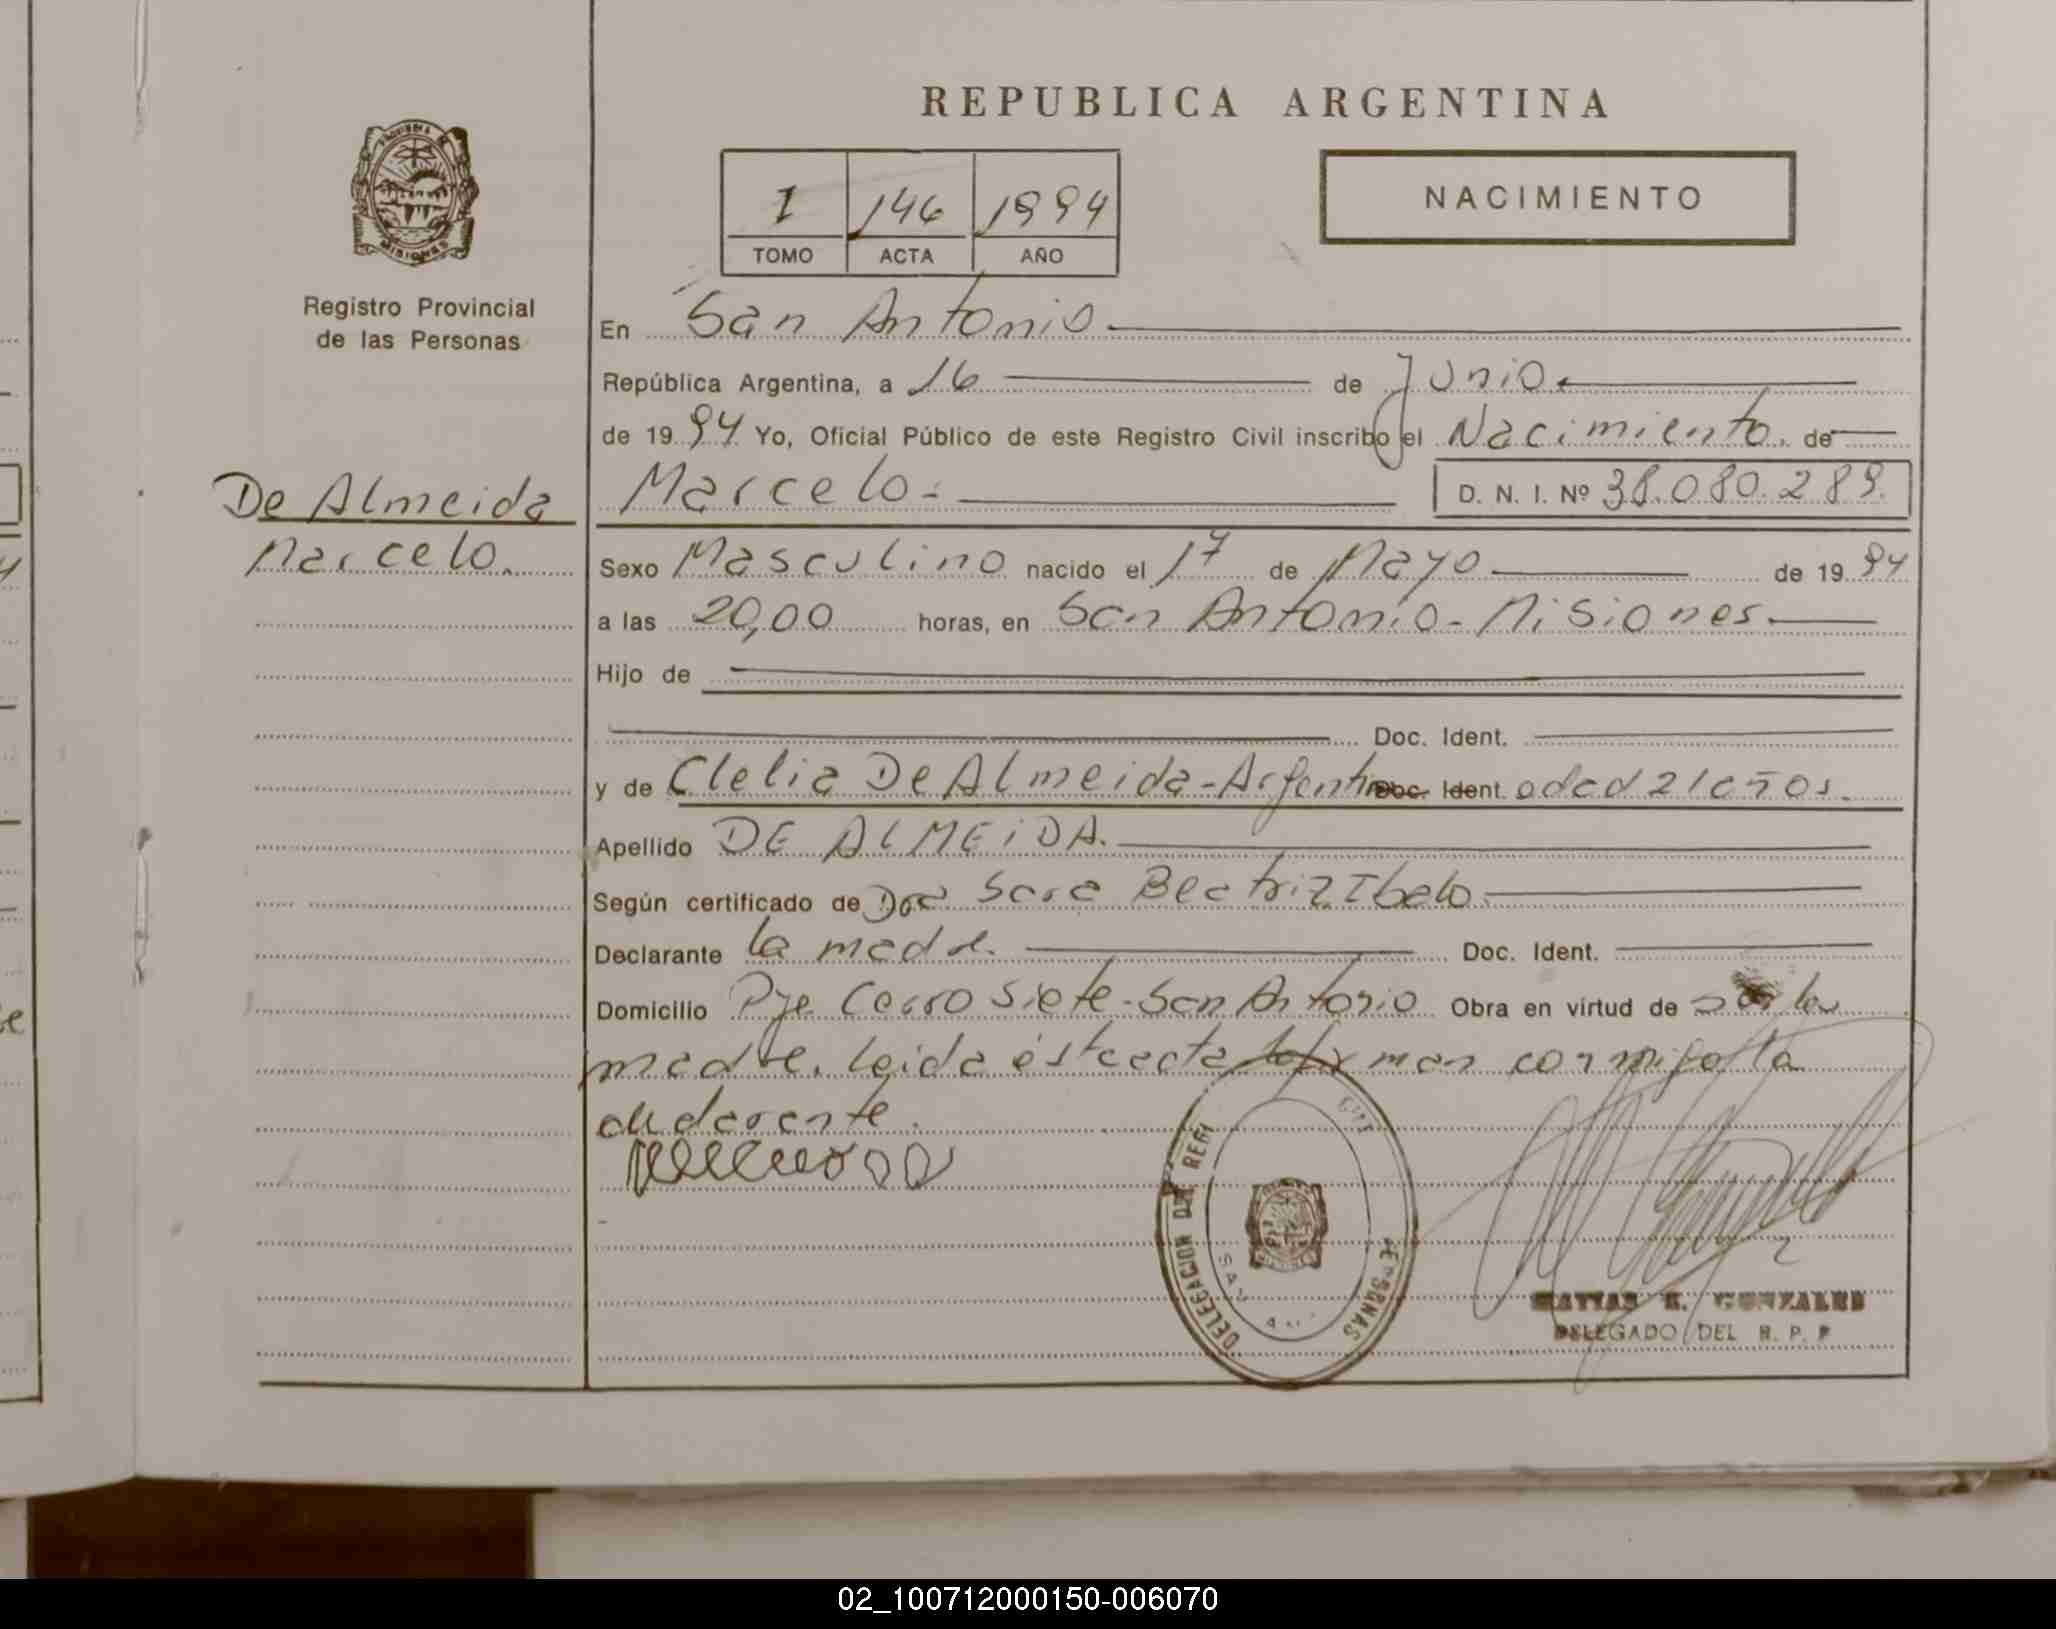 REPUBLICA ARGENTINA
PROVINCIA
MISIONES
Registro Provincial
de las Personas
1 146 1994
TOMO ACTA AÑO
NACIMIENTO
En San Antonio
República Argentina, a 16 de Junio
de 1994 Yo, Oficial Público de este Registro Civil inscribo el Nacimiento. de
Marcelo.- D. N. I. Nº 38.080.289.
De Almeida
Marcelo.
Sexo Masculino nacido el 17 de Mayo de 1994
a las 20,00 horas, en San Antonio - Misiones.
Hijo de
Doc. Ident.
y de Clelia De Almeida - Argentina Doc. Ident. edad 21 años.
Apellido DE ALMEIDA.
Según certificado de Dra Sara Beatriz Ibelo
Declarante la madre. Doc. Ident.
Domicilio Pje Cerro Siete - San Antonio Obra en virtud de ser la
madre. Leida ésta acta la firman conmigo la
declarante.
DELEGACION DEL REGI PERSONAS
SAN ANT
MATIAS R. GONZALES
DELEGADO DEL R. P. P
02_100712000150-006070